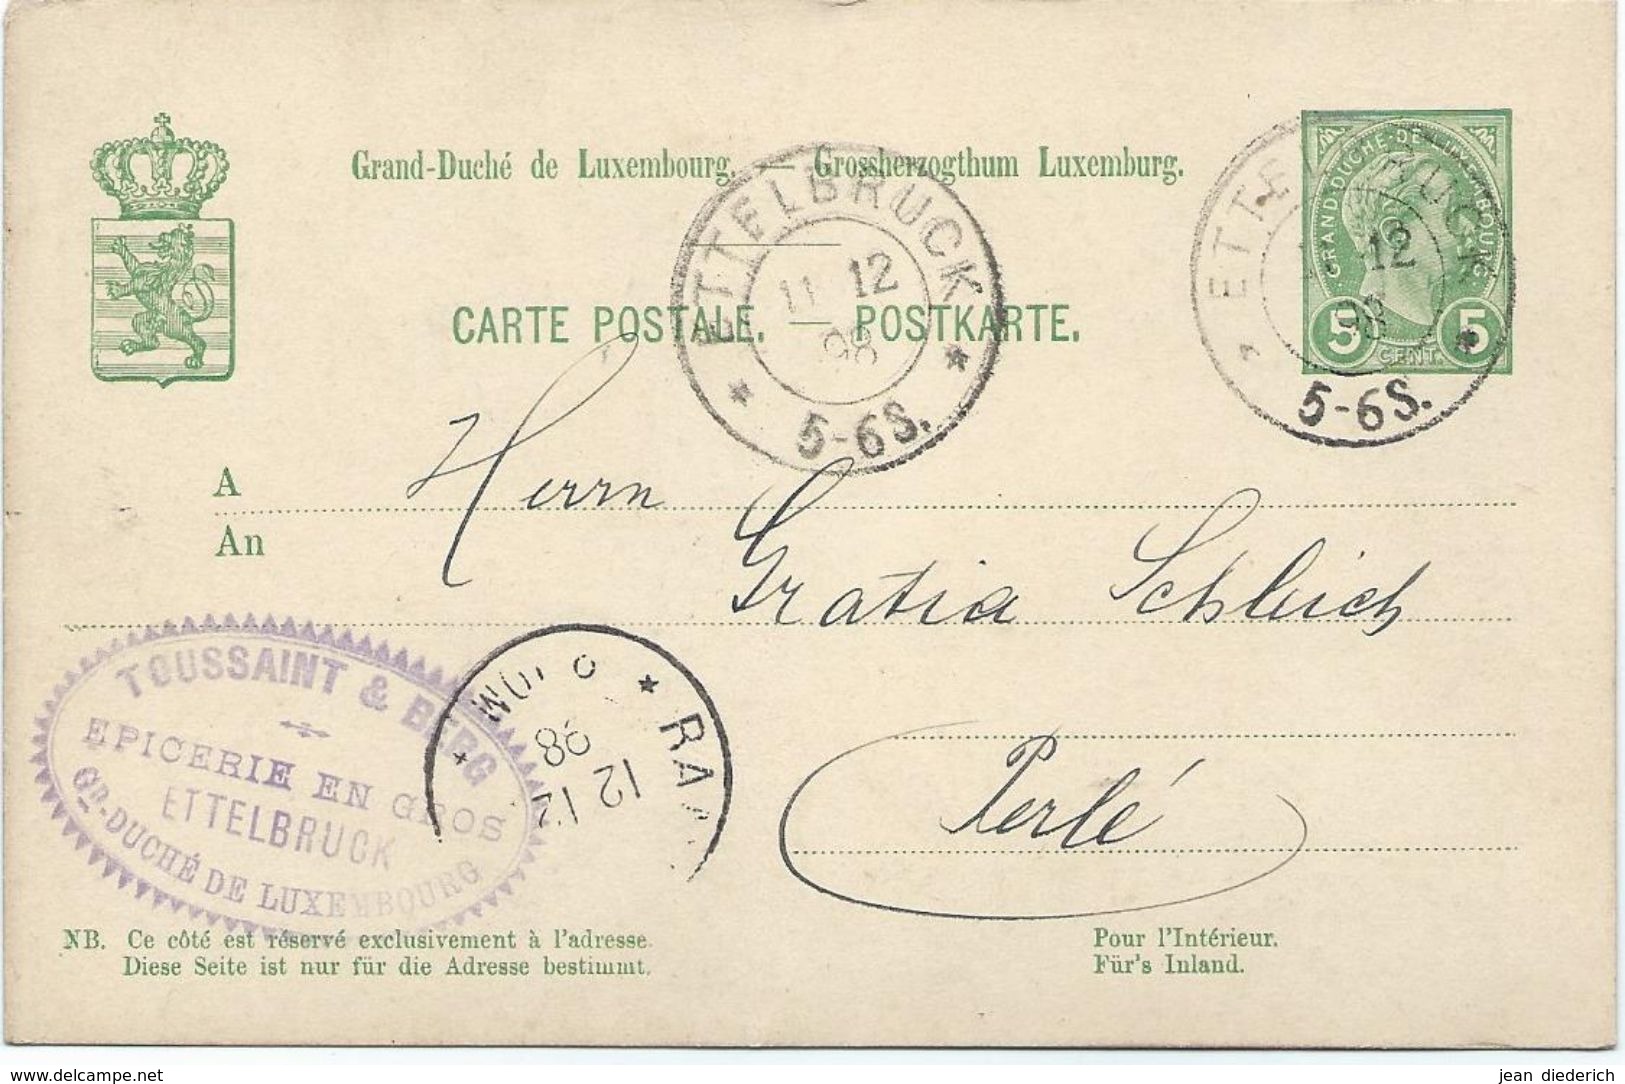 Grand-Duché de Luxembourg. — Grossherzogthum Luxemburg.
GRAND-DUCHÉ-DE-LUXEMBOURG
5 CENT. 5
ETTELBRUCK
11 12
98
5-6S.
ETTELBRUCK
12
98
5-6S.
CARTE POSTALE. — POSTKARTE.
A
An
Herrn
Gratia Schleich
Perlé
TOUSSAINT & BERG
EPICERIE EN GROS
ETTELBRUCK
GD.-DUCHÉ DE LUXEMBOURG
12 12
98
NB. Ce côté est réservé exclusivement à l'adresse.
Diese Seite ist nur für die Adresse bestimmt.
Pour l'Intérieur.
Für's Inland.
www.delcampe.net
jean diederich